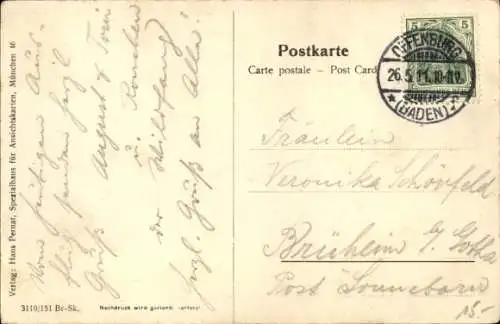 Postkarte
Carte postale – Post Card
5 5
OFFENBURG
26.5.11. 10-11V.
* (BADEN) *
Fräulein
Veronika Schönfeld
Brüheim b/ Gotha
Post Sonneborn
15.-
Vom heutigen Aus-
flug senden herzl.
Gruß August & Toni
u.
der Wildfang
herzl. Gruß an Alle!
Verlag: Hans Pernat, Spezialhaus für Ansichtskarten, München 16
3110/151 Br-Sk.
Nachdruck wird gerichtl. verfolgt